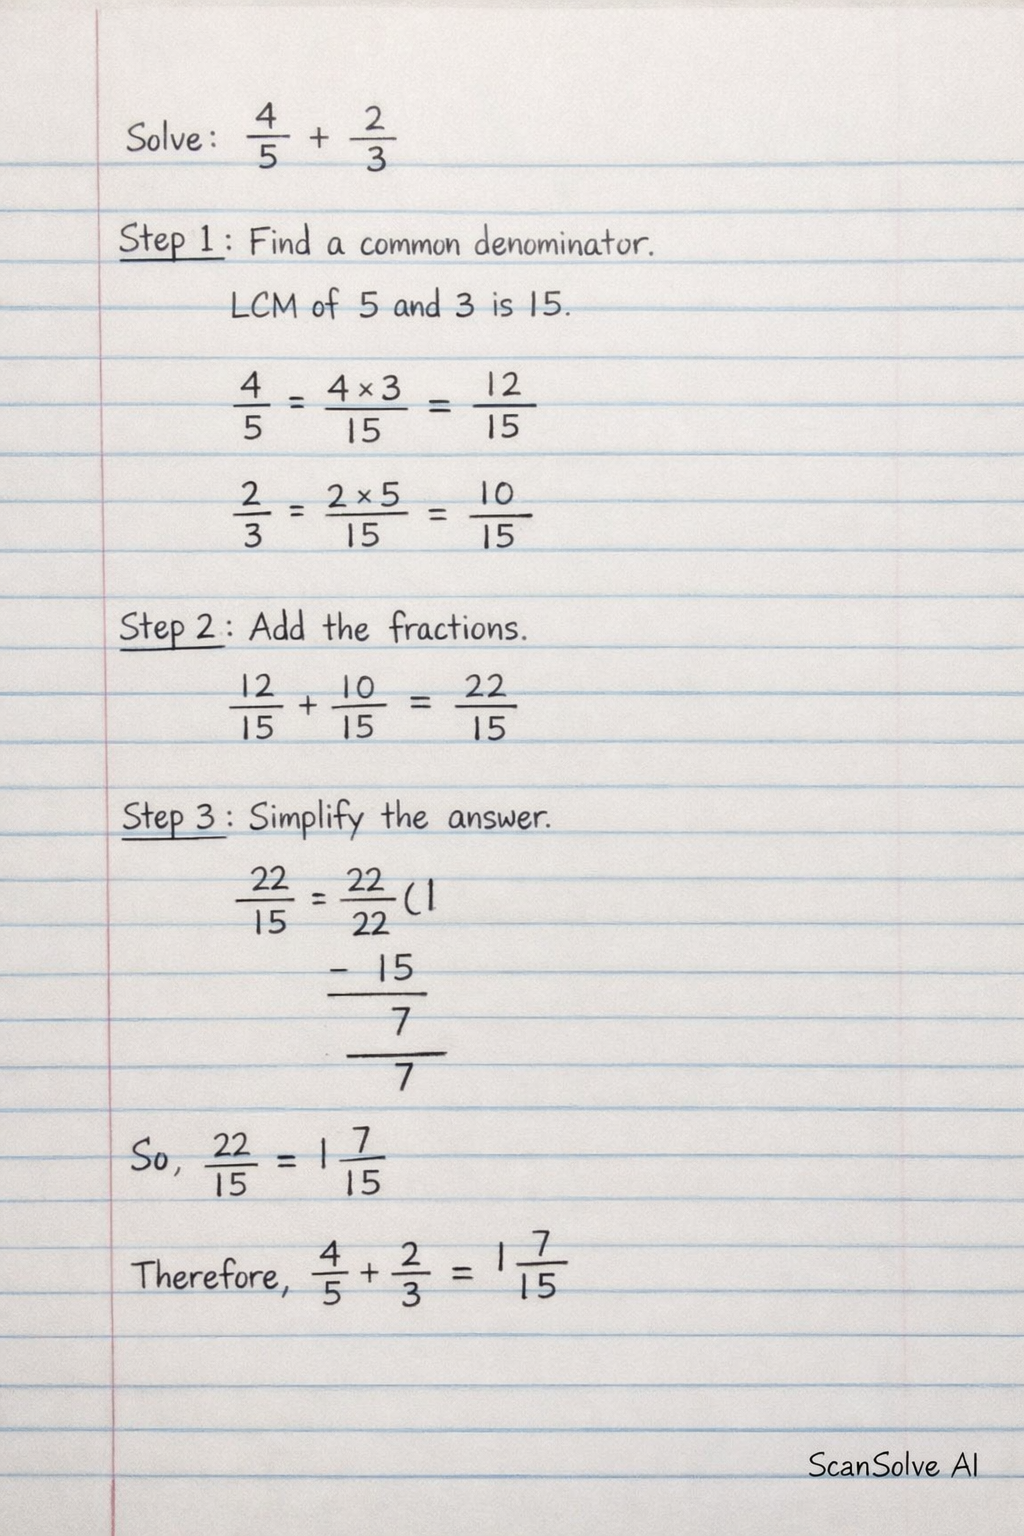 Solve: 4/5 + 2/3
Step 1: Find a common denominator.
LCM of 5 and 3 is 15.
4/5 = 4×3/15 = 12/15
2/3 = 2×5/15 = 10/15
Step 2: Add the fractions.
12/15 + 10/15 = 22/15
Step 3: Simplify the answer.
22/15 = 22/22 (1
- 15
7
7
So, 22/15 = 1 7/15
Therefore, 4/5 + 2/3 = 1 7/15
ScanSolve AI